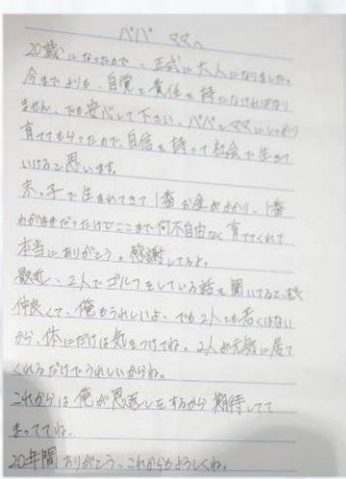 パパ ママへ
20歳になったので、正式に大人になりました。
今までよりも、自覚と責任を持たなければなり
ません。でも安心して下さい、パパとママにしっかり
育ててもらったので、自信を持って社会で生きて
いけると思います。
末っ子で生まれてきて1番お金がかかり、1番
わがままだったけどここまで何不自由なく育ててくれて
本当にありがとう。感謝してるよ。
最近、2人でゴルフをしている話を聞いてると、
仲良くて、俺もうれしいよ、でも2人とも若くはない
から、体にだけは気をつけてね。2人が元気に居て
くれるだけでうれしいからね。
これからは俺が恩返しをするから期待してて
まっててね。
20年間ありがとう、これからもよろしくね。